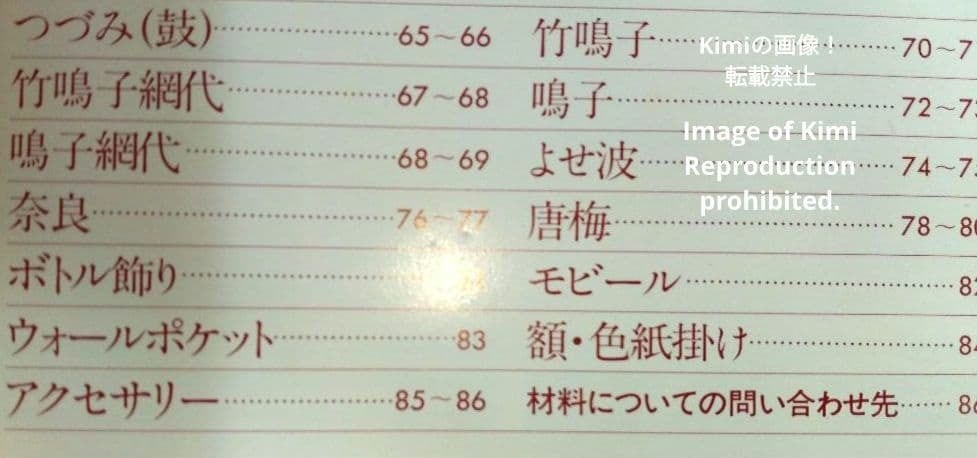 つづみ(鼓)……65~66
竹鳴子網代……67~68
鳴子網代……68~69
奈良……76~77
ボトル飾り……
ウォールポケット……83
アクセサリー……85~86
竹鳴子……70~7
鳴子……72~7
よせ波……74~7
唐梅……78~80
モビール……82
額・色紙掛け……84
材料についての問い合わせ先……86
Kimiの画像!
転載禁止
Image of Kimi
Reproduction
prohibited.